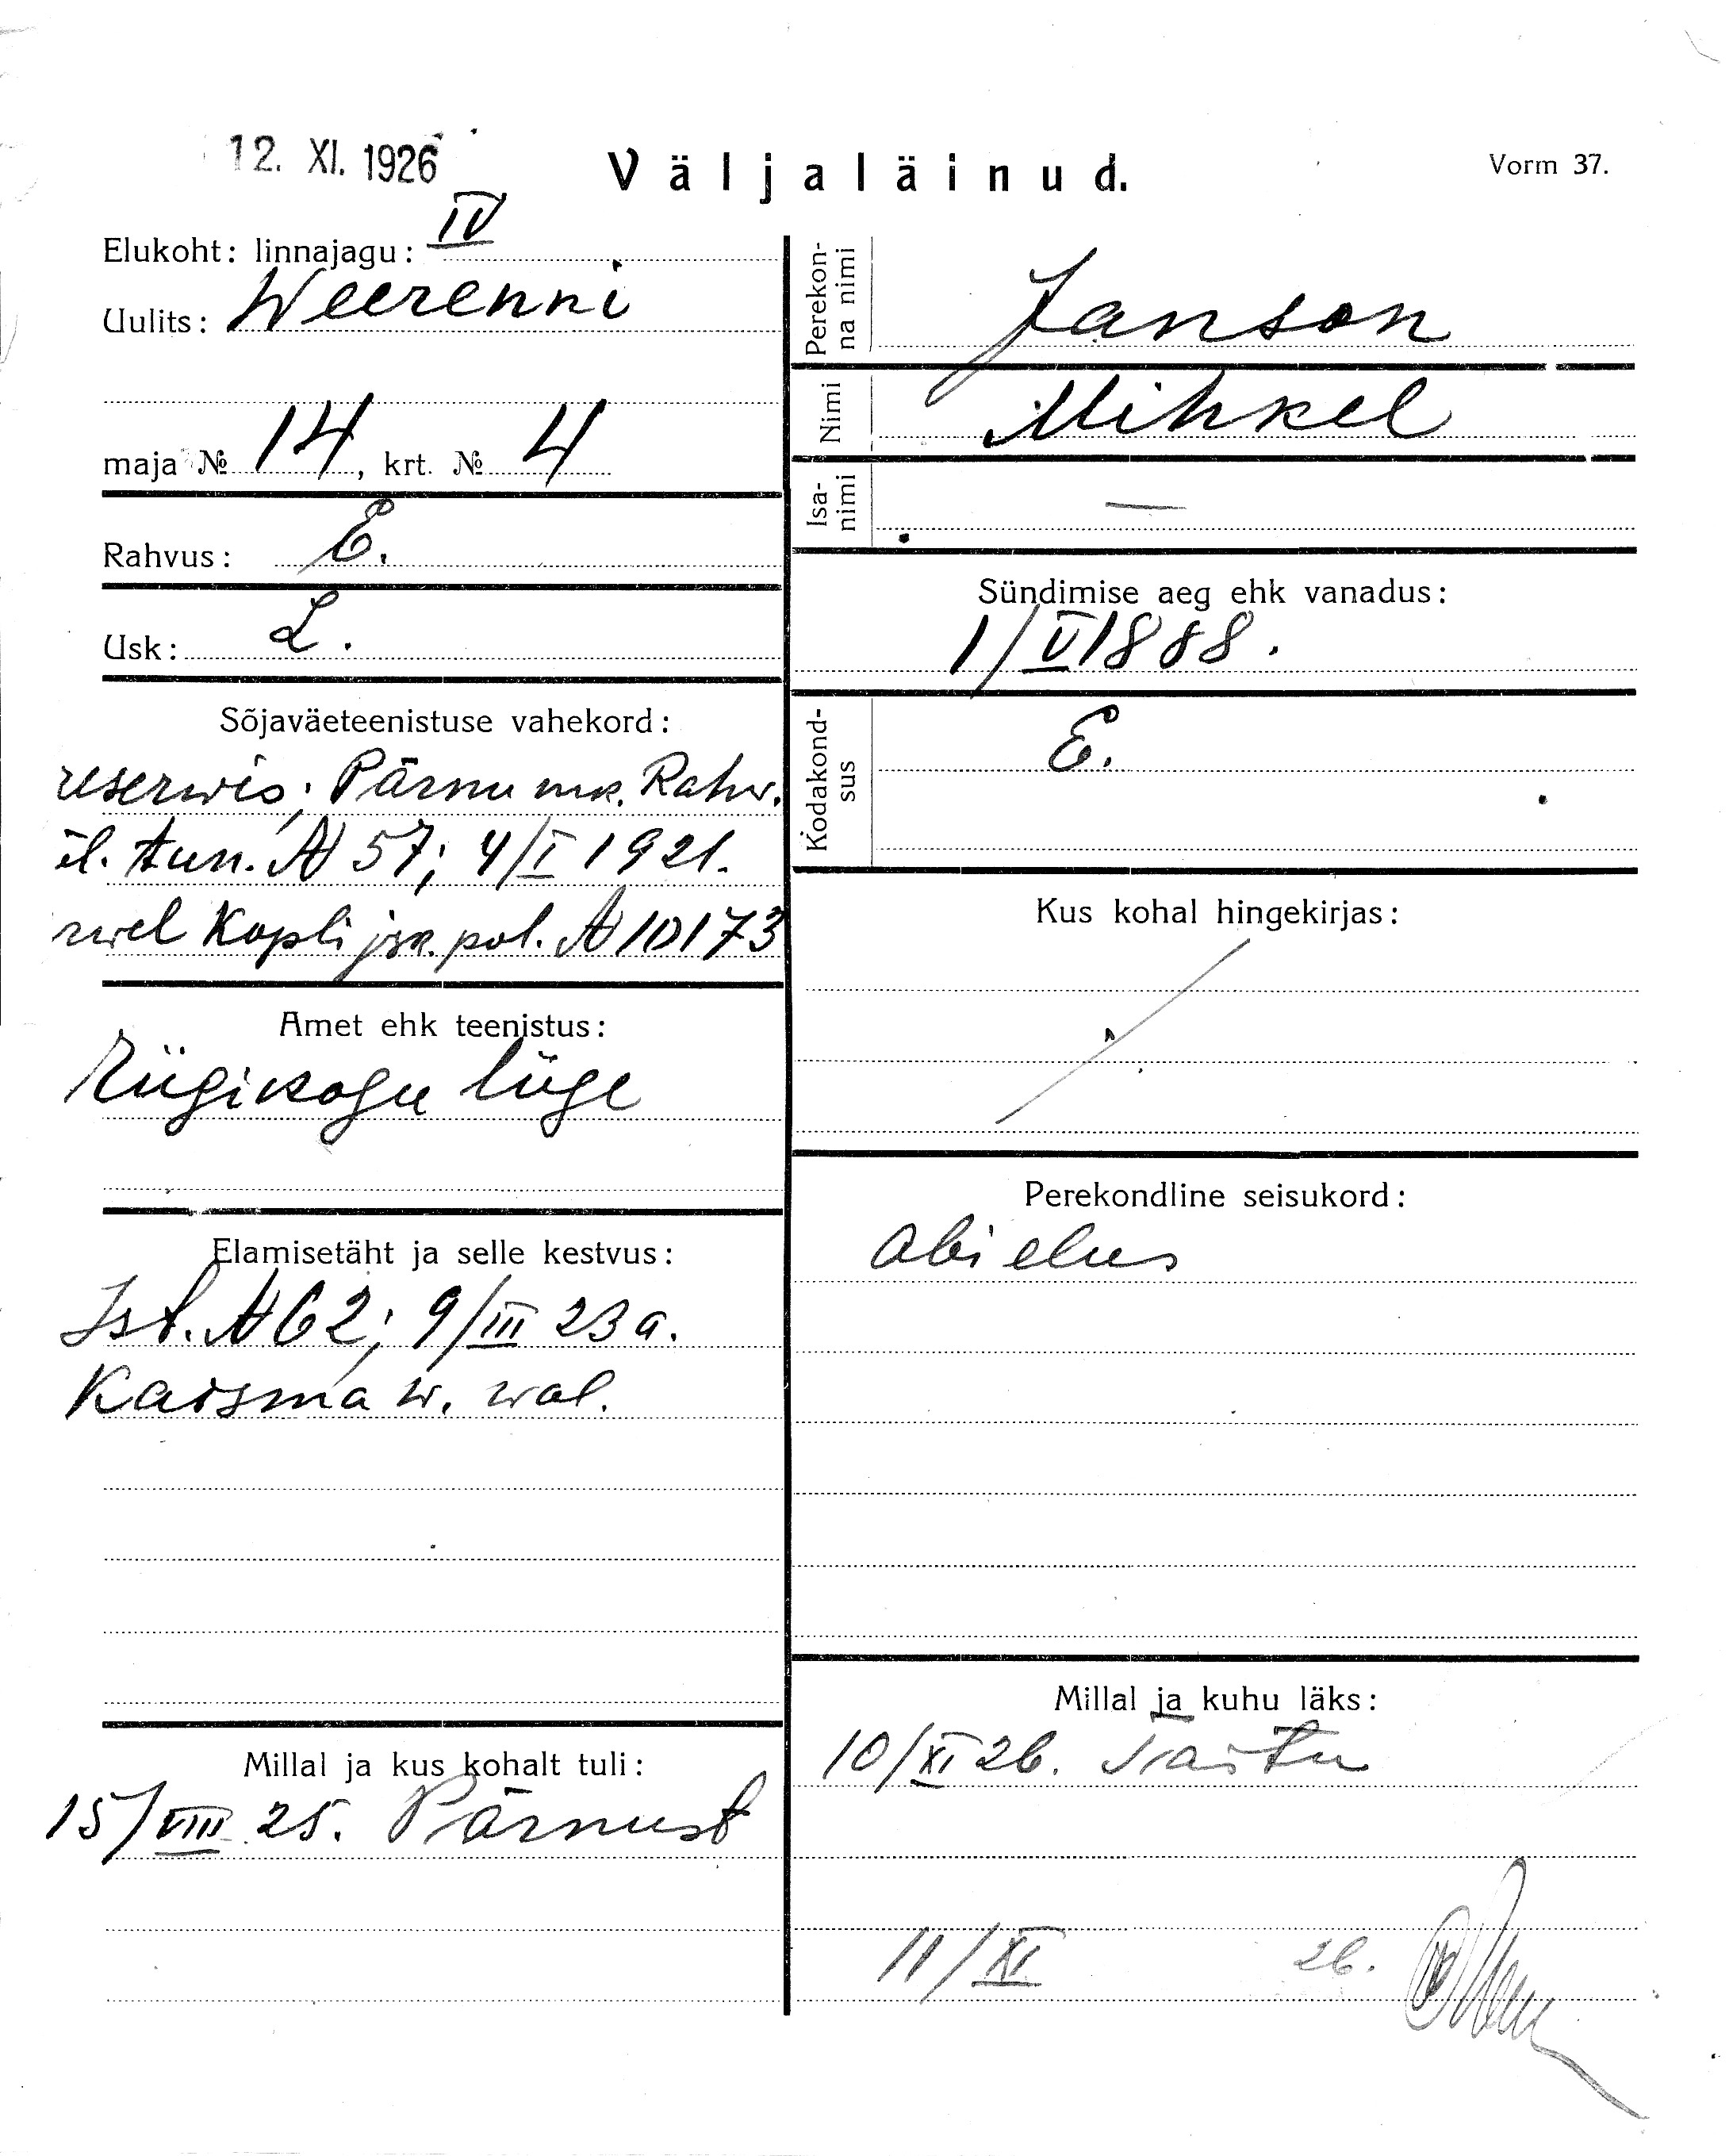 12. XI. 1926
Väljaläinud.
Vorm 37.
Elukoht: linnajagu: IV
Uulits: Weerenni
maja № 14, krt. № 4
Rahvus: E.
Usk: L.
Sõjaväeteenistuse vahekord:
reserwis; Pärnu mk. Rahw.
ül. tun. № 57; 4/I 1921.
rwel Kopli jsk. pol. № 10173
Amet ehk teenistus:
Riigikogu liige
Elamisetäht ja selle kestvus:
Ist. № 62; 9/III 23 a.
Kaisma w. wal.
Millal ja kus kohalt tuli:
15/VIII 25. Pärnust
Perekonna nimi
Janson
Nimi
Mihkel
Isanimi
—
Sündimise aeg ehk vanadus:
1/V 1888.
Kodakondsus
E.
Kus kohal hingekirjas:
Perekondline seisukord:
abielus
Millal ja kuhu läks:
10/XI 26. Tartu
11/XI 26.